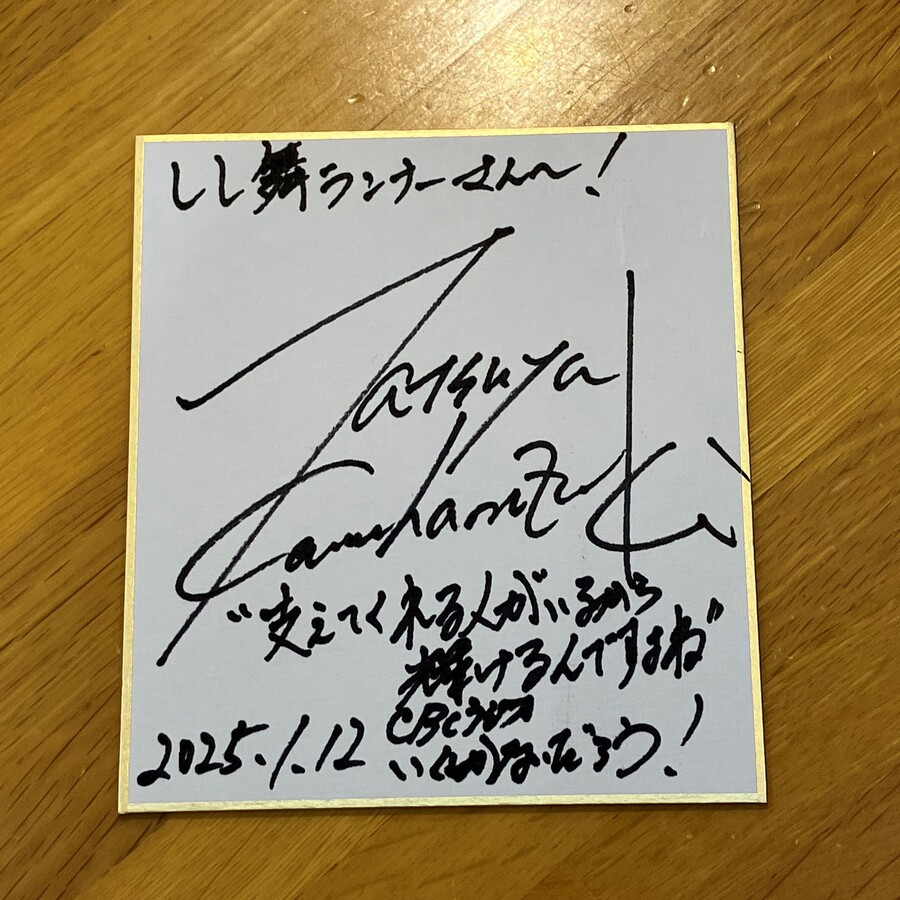 しし舞ランナーさんへ!
Tatsuya
Kamikanezuki
"支えてくれる人がいるから
輝けるんですよね"
CBCラジオ
いくしかないだろう!
2025.1.12